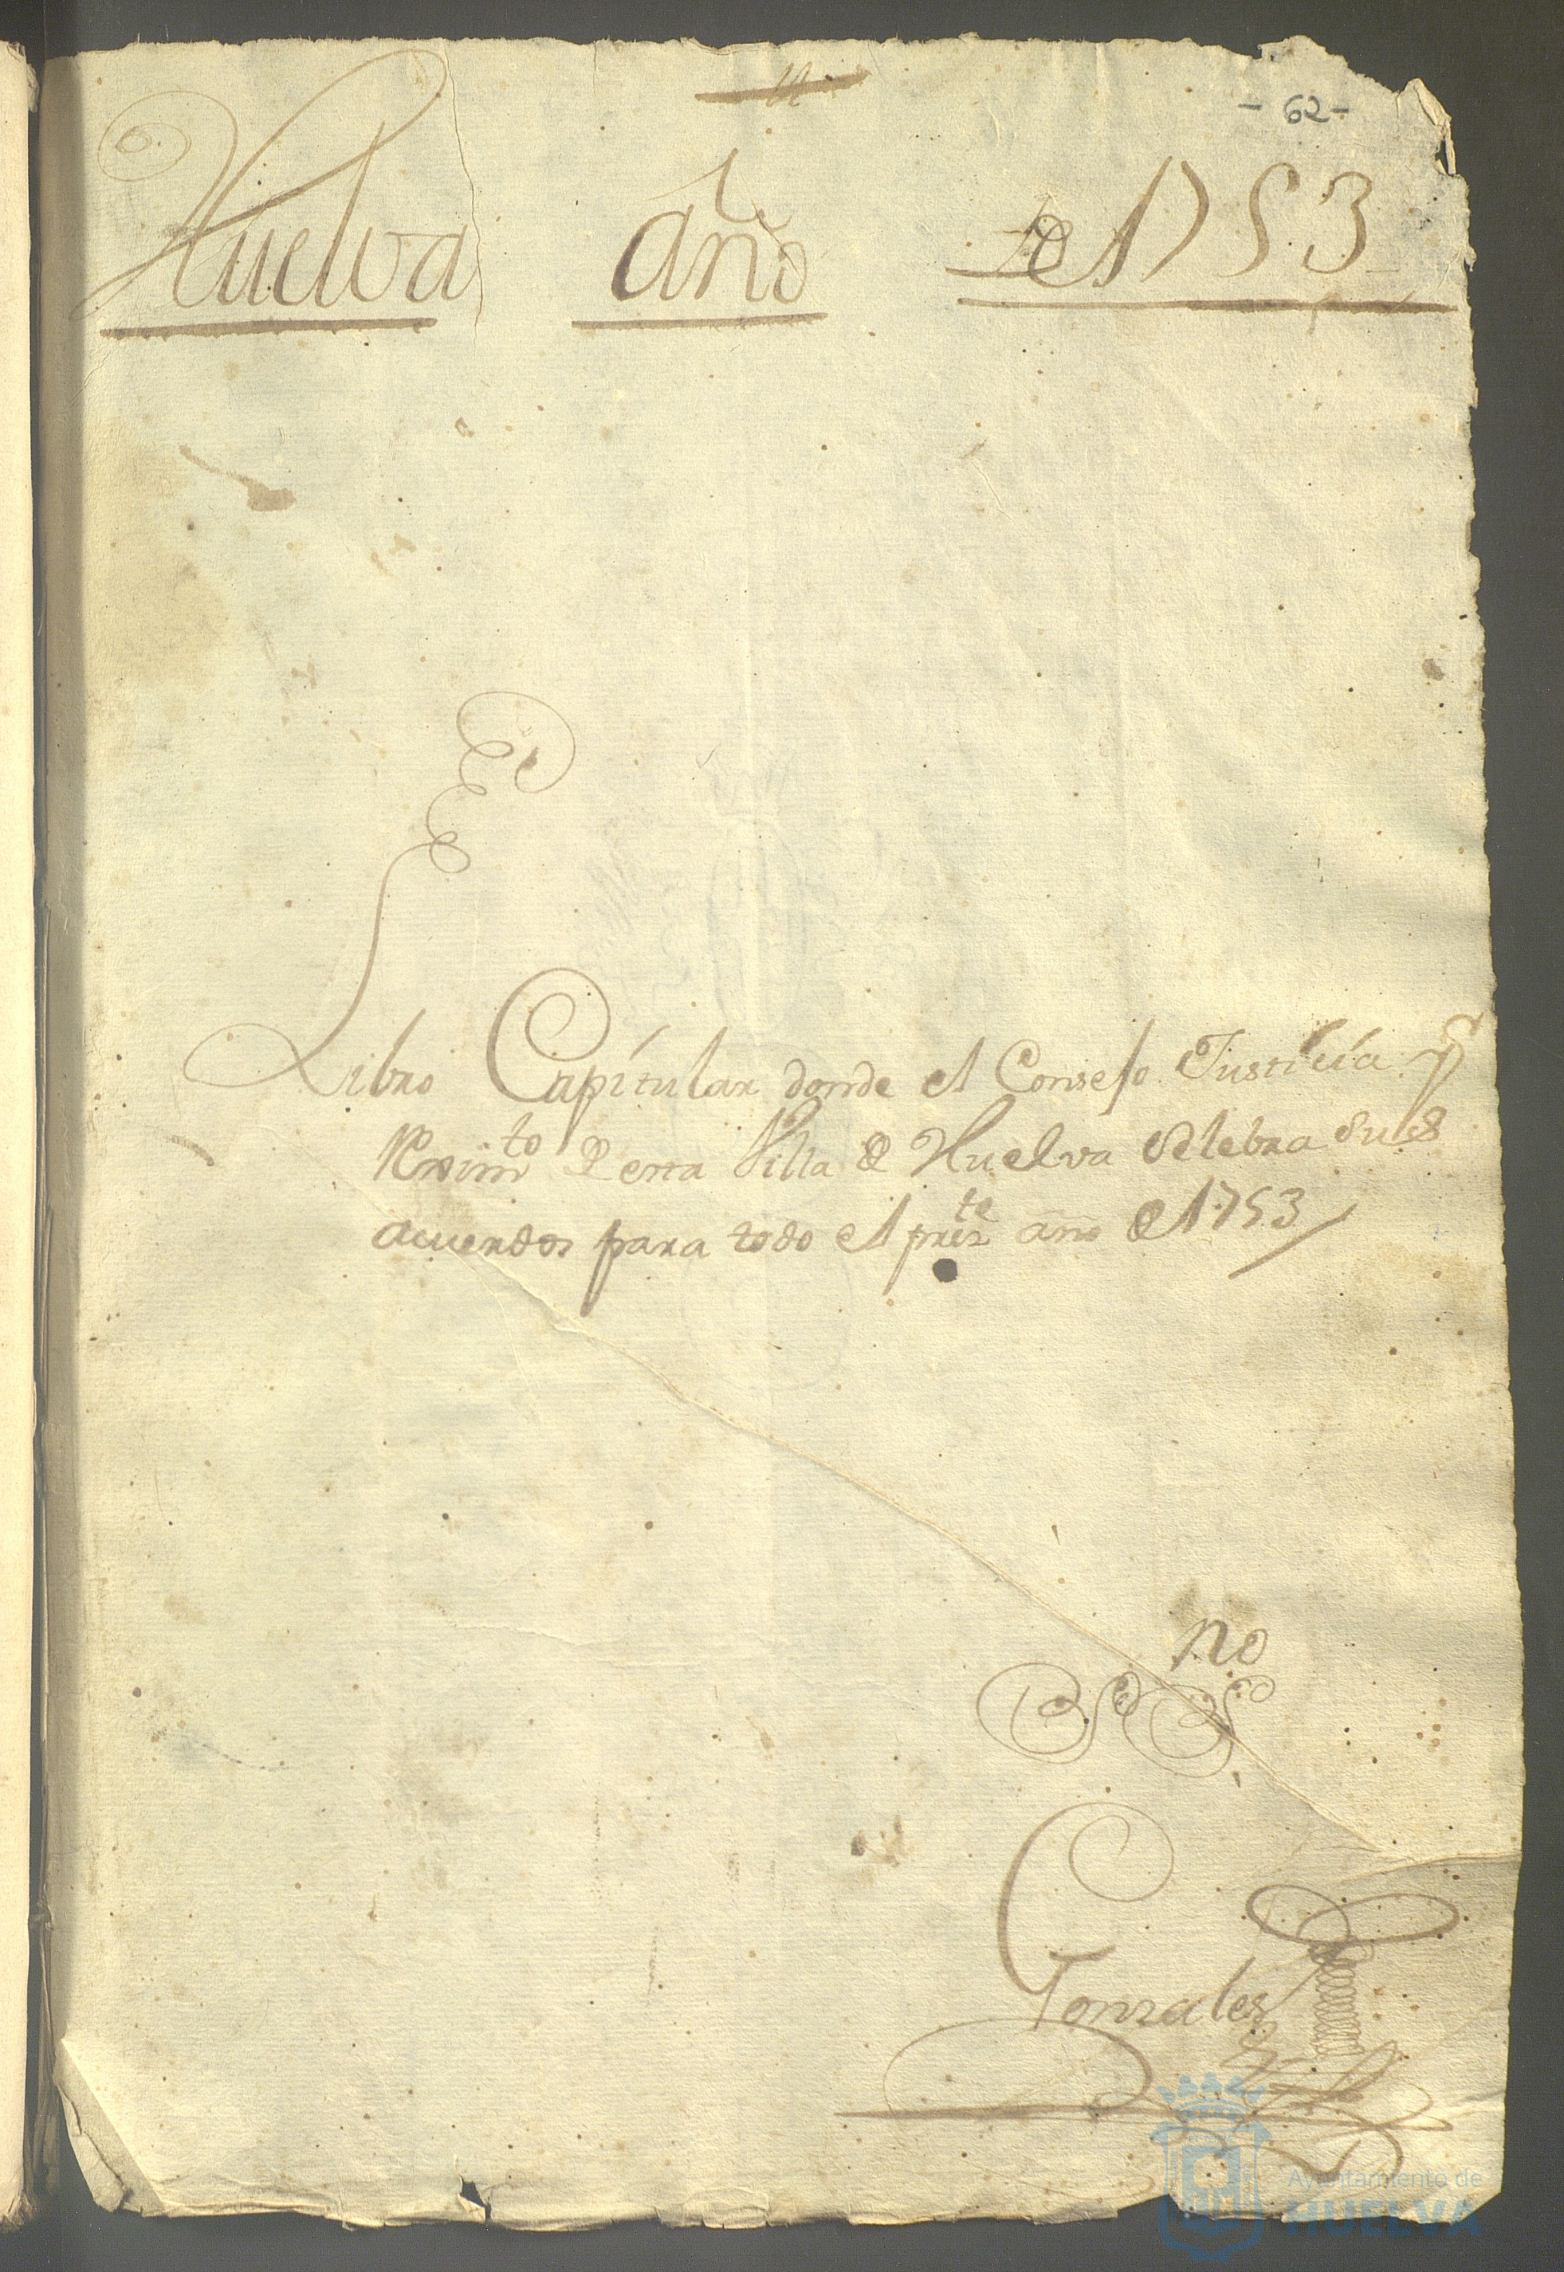 - 62 -
Huelva año de 1753
Libro Capitular donde el Consejo Justicia y
Reximto de esta Villa de Huelva Selebra Sus
acuerdos para todo el prete año de 1753
no
Gonzales
Ayuntamiento de
HUELVA